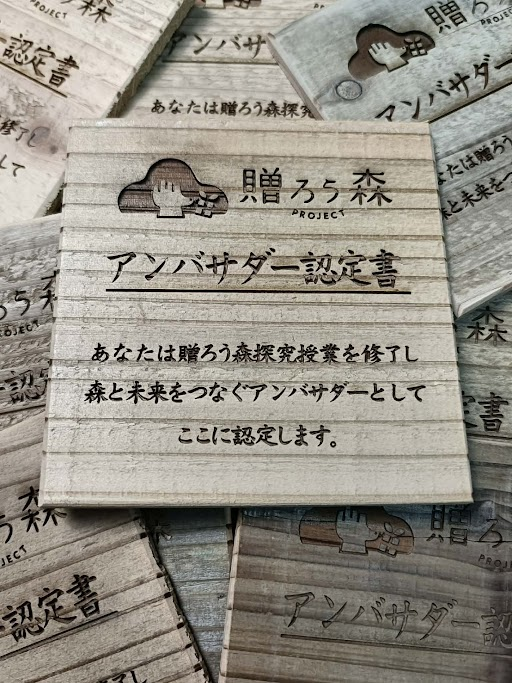 贈ろう森
PROJECT
アンバサダー認定書
あなたは贈ろう森探究授業を修了し
森と未来をつなぐアンバサダーとして
ここに認定します。
認定書
修了し
して
アンバサ
あなたは贈ろう森探究
贈ろ
PROJECT
アンバサダー
なたは贈ろう
森と未来をつ
ろう森
PROJECT
認定
森
定書
ろう森
PROJECT
ー認定書
修了し
贈ろ
PROJ
アンバサダー認